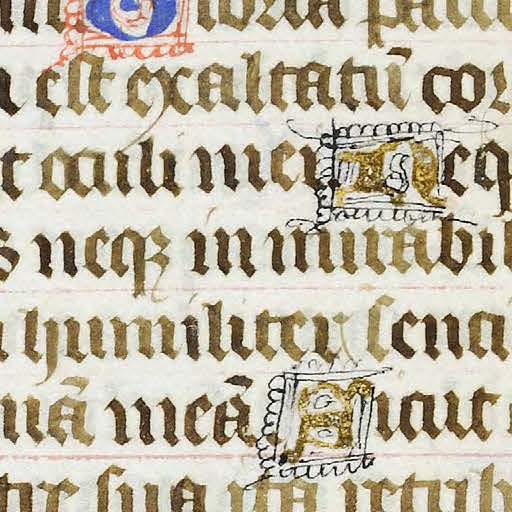 Gloria patri
est exaltatū cor
oculi mei Neq
neqꝫ in mirabil
humiliter senti
mā meā Sicut
sua ita retrib